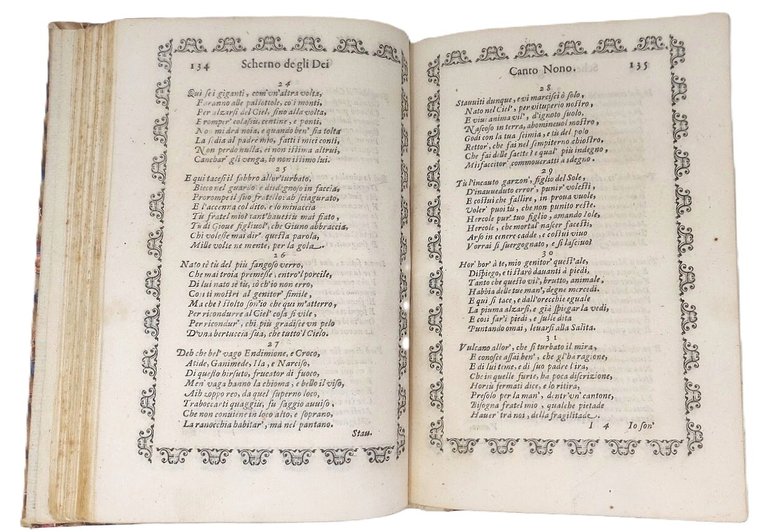 134 Scherno degli Dei
24
Qui se i giganti, com'un'altra volta,
Faranno alle pallottole, co i monti,
Per alzarsi al Ciel, sino alla volta
E romper' colassù, centine, e ponti,
Non mi drà noia, e quando ben' sia tolta
La sedia al padre mio, fatti i miei conti,
N'on perdo nulla, ei non issima altrui,
Cancbar' gli venga, io non issimo lui.
25
E qui tacesi il fabbro allor'turbato,
Bieco nel guardo e disdignoso in faccia
Proroppe il suo fratello: ab sciagurato,
E l'accenna col dito, e lo minaccia
Tu fratel mio? tant'bauessi mai fiato,
Tu di Gioue figliuol', che Giuno abbraccia,
Chi volesse mai dir' questa parola,
Mille volte ne mente, per la gola.
26
Nato sè tù del più fangoso verro,
Che mai troia premesse, entro'l porcile,
Di lui nato sè tù, io ch'io non erro,
Con ti mostri al genitor' simile,
Ma che? stolto son'io che qui m'atterro,
Per ricondurre al Ciel cosa sì vile,
Per ricondur', chi più gradisce un pelo
D'vna bertuccia sua, che tutto'l Cielo.
27
Deh che bel' vago Endimione, e Croco,
Atide, Ganimede, Ila, e Narciso,
Di questo hirsuto, frucator di fuoco,
Men' vaga hanno la chioma, e bello il viso,
Ahb zoppo reo, da quel superno loco,
Traboccarti quaggiù, fu saggio auuiso,
Che non conuiene in loco alto, e soprano,
La ranocchia habitar', ma nel pantano.
Stau.
Canto Nono. 135
28
Stauuiti dunque, e vi marcisci ò solo,
Nato nel Ciel', per vituperio nostro,
E viui anima vil', d'ignoto suolo,
Nascoso in terra, abomineuol mostro,
Godi con la tua scimia, e tù del polo
Rettor', che fai nel sempiterno chiostro,
Che fai delle saette? e qual' più indegno,
Misfaccitor' commoueratti a sdegno.
29
Tù l'incauto garzon', figlio del Sole,
D'inauueduto error', punir' volesti,
E costui che fallire, in proua vuole,
Voler' puoi tù, che non punito reste.
Hercole pur'tuo figlio, amando Iole,
Hercole, che mortal nascer faceste,
Arso in cenere cadde, e costui viuo
Vorrai si suergognato, e sì lasciuo?
30
Hor' hor' à te, mio genitor' quest'ale,
Dispiego, e ti starò dauanti à piedi,
Tanto che questo vil, brutto, animale,
Habbia delle tue man', degne mercedi.
E qui si tace, e dall'orecchie eguale
La piuma alzarsi, e già spiegar la vedi,
E così far' i piedi, e sulle dita
Puntando omai, leuarsi alla Salita.
31
Vulcano allor', che sì turbato il mira,
E conosce assai ben', che gl'ha ragione,
E di lui teme, e di suo padre l'ira,
Che in quelle furie, ha poca discrizione,
Horsù fermati dice, e lo ritira,
Presolo per la man', dent'vn'cantone,
Bisogna fratel mio, qualche pietade
Hauer tra noi, della fragilitade.
I 4 Io son'